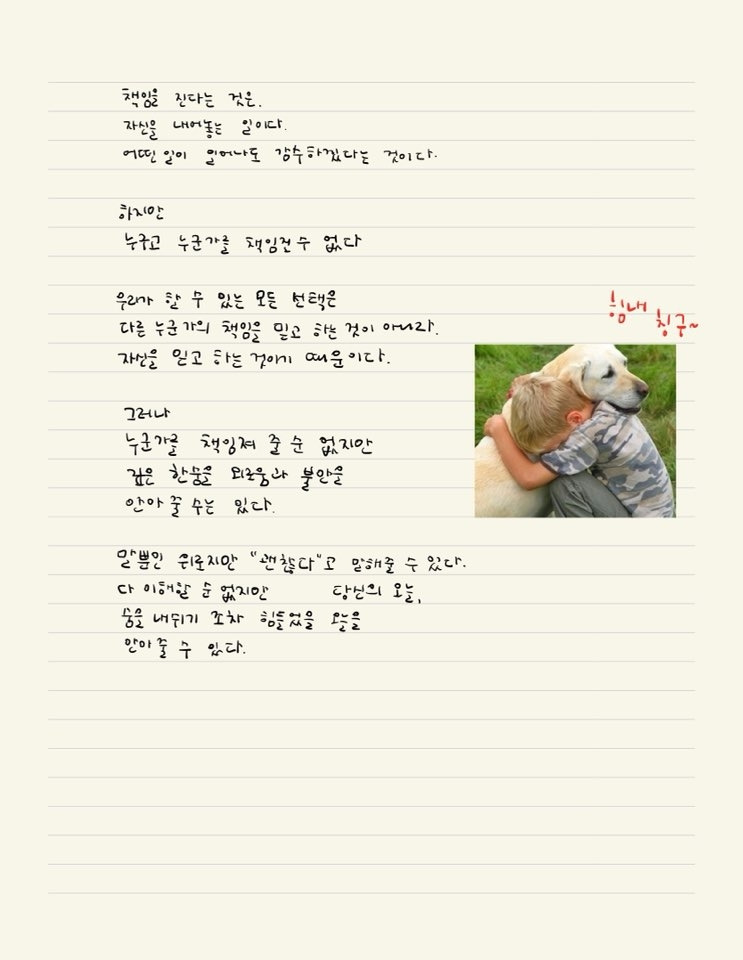 책임을 진다는 것은,
자신을 내어놓는 일이다.
어떤 일이 일어나도 감수하겠다는 것이다.
하지만
누구고 누군가를 책임질 수 없다
우리가 할 수 있는 모든 선택은
다른 누군가의 책임을 믿고 하는 것이 아니라.
자신을 믿고 하는 것이기 때문이다.
힘내
친구~
그러나
누군가를 책임져 줄 순 없지만
깊은 한숨을 외로움과 불안을
안아 줄 수는 있다.
말뿐인 위로지만 "괜찮다"고 말해줄 수 있다.
다 이해할 순 없지만 당신의 오늘,
숨을 내쉬기 조차 힘들었을 오늘을
안아 줄 수 있다.